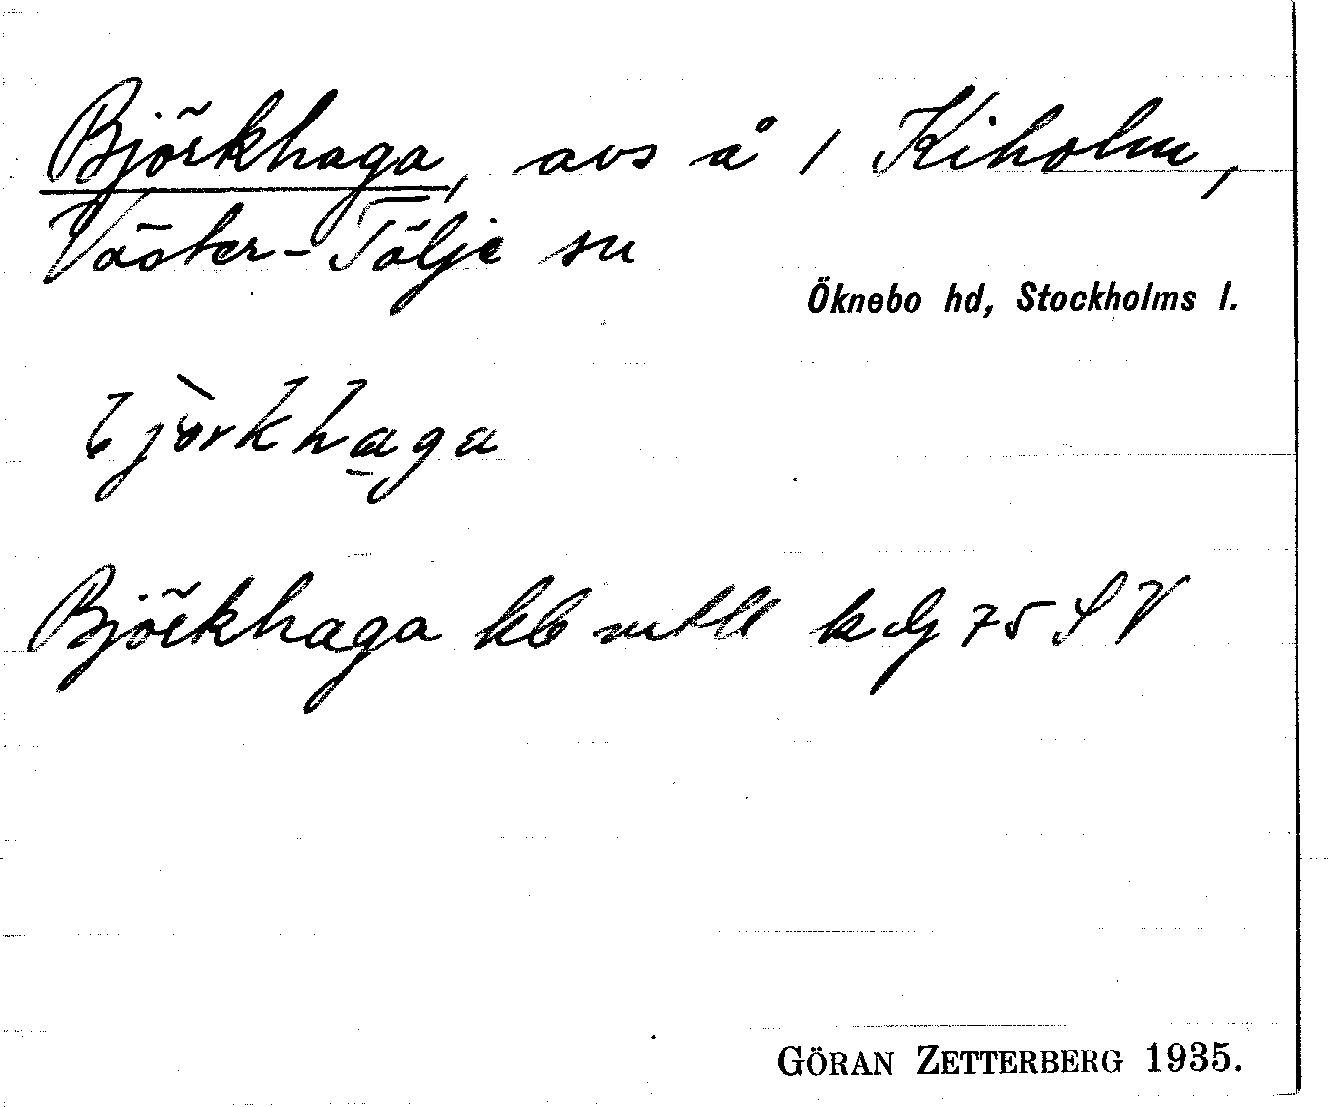 Björkhaga, avs å 1 Kiholm,
Väster-Tälje sn
Öknebo hd, Stockholms l.
bjö̀rkhaga
Björkhaga kb
GÖRAN ZETTERBERG 1935.